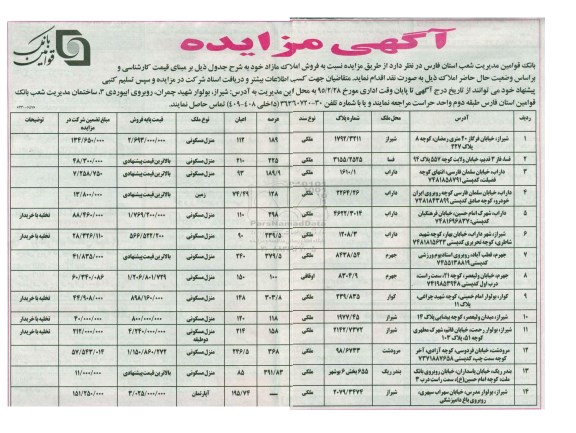 آگهی مزایده
بانک قوامین
بانک قوامین مدیریت شعب استان فارس در نظر دارد از طریق مزایده نسبت به فروش املاک مازاد خود به شرح جدول ذیل بر مبنای قیمت کارشناسی و
براساس وضعیت حال حاضر املاک ذیل به صورت نقد اقدام نماید. متقاضیان جهت کسب اطلاعات بیشتر و دریافت اسناد شرکت در مزایده و سپس تسلیم کتبی
پیشنهاد خود می توانند از تاریخ درج آگهی تا پایان وقت اداری مورخ ۹۵/۲/۲۸ به محل این مدیریت به آدرس: شیراز، بولوار شهید چمران، روبروی ابیوردی ۳، ساختمان مدیریت شعب بانک
قوامین استان فارس طبقه دوم واحد حراست مراجعه نمایند و یا با شماره تلفن ۳۰-۳۶۳۶۰۷۲۰ (داخلی ۴۰۸-۴۰۹) تماس حاصل نمایند.
ردیف آدرس محل ملک شماره پلاک نوع سند عرصه اعیان نوع ملک قیمت پایه فروش مبلغ تضمین شرکت در مزایده توضیحات
۱ شیراز، خیابان فرگاز ۲۰ متری رمضان، کوچه ۸ پلاک ۲۲۷ شیراز ۱۷۹۲/۳۲۱۱ ملکی ۱۸۹ ۱۱۲ منزل مسکونی ۲/۶۹۳/۰۰۰/۰۰۰ ۱۳۴/۶۵۰/۰۰۰
۲ فسا، فاز ۳ لدیم، خیابان ولایت کوچه ۵۵۷ پلاک ۹۴ فسا ۳۱۵۵/۲۵۲۵ ملکی ۲۲۵ ۲۱۰ منزل مسکونی بالاترین قیمت پیشنهادی ۴۸/۳۰۰/۰۰۰
۳ داراب، خیابان سلمان فارسی، انتهای کوچه فضیلت، کدپستی ۷۴۸۱۸۵۸۷۹۱ داراب ۱۶۱۰/۱ ملکی ۱۸۹/۹ ۹۳ منزل مسکونی بالاترین قیمت پیشنهادی ۷/۲۵۸/۷۵۰
۴ داراب، خیابان سلمان فارسی کوچه روبروی ایران خودرو، کوچه صادق کدپستی ۷۴۸۱۸۴۳۸۹۹ داراب ۲۲۶۴/۲۶ ملکی ۱۲۸ ۷۴/۴۹ زمین بالاترین قیمت پیشنهادی ۱۳/۸۰۰/۰۰۰
۵ داراب، شهرک امام حسین، خیابان فرهنگیان کدپستی ۷۴۸۱۶۹۶۸۳۷ داراب ۴۶۲۲/۳۰۱۴ ملکی ۲۹۸ ۱۱۰ منزل مسکونی ۱/۷۶۹/۲۰۰/۰۰۰ ۸۸/۴۶۰/۰۰۰ تخلیه با خریدار
۶ شیراز، شهر داراب، خیابان بهار، کوچه شهید شاطری، کوچه تحریری کدپستی ۷۴۸۱۸۱۵۶۲۳ داراب ۱۲۰۸/۳ ملکی ۲۳۹/۵ ۹۰ منزل مسکونی ۵۶۶/۵۲۲/۲۰۰ ۲۸/۳۲۶/۱۱۰ تخلیه با خریدار
۷ جهرم، قطب آباد، روبروی استادیوم ورزشی کدپستی ۷۴۵۵۱۳۸۸۱۹ جهرم ۸۴۳۸/۵۴ ملکی ۲۷۹/۵ ۲۴۰ منزل مسکونی بالاترین قیمت پیشنهادی ۴۱/۸۳۵/۰۰۰
۸ جهرم، خیابان ولیعصر، کوچه ۲۱، سمت راست، درب اول کدپستی ۷۴۱۹۸۵۳۹۴۸ جهرم ۸۳۰۲/۹ اوقافی ۱۰۰ ۱۵۰ منزل مسکونی ۱/۲۰۶/۸۰۱/۷۲۹ ۶۰/۳۴۰/۰۸۶
۹ کوار، بولوار امام خمینی، کوچه شهید چراغی، پلاک ۱۱ کوار ۲۳۹/۸۳۵ ملکی ۳۰۳/۸ ۱۴۸ منزل مسکونی ۸۹۸/۱۶۰/۰۰۰ ۴۴/۹۰۸/۰۰۰ تخلیه با خریدار
۱۰ شیراز، میدان ولیعصر، کوچه بیضایی پلاک ۱۴ شیراز ۱۹۷۷/۴۵ ملکی ۱۱۸ ۱۲۰ منزل مسکونی ۸۰۰/۰۰۰/۰۰۰ ۴۰/۰۰۰/۰۰۰ تخلیه با خریدار
۱۱ شیراز، بولوار رحمت، خیابان قائم، شهرک مطهری کوچه ۵۱، پلاک ۱۰۳ شیراز ۲۱۴۲/۷۳۷۲ ملکی ۱۵۸ ۲۱۴ منزل مسکونی دو طبقه ۴/۲۴۰/۰۰۰/۰۰۰ ۲۱۲/۰۰۰/۰۰۰ تخلیه با خریدار
۱۲ مرودشت، خیابان فردوسی، کوچه آزادی، آخر کوچه سمت چپ، کدپستی ۷۳۷۱۸۸۷۶۵۸ مرودشت ۹۸/۶۷۳۳ ملکی ۳۶۸ ۲۴۶/۵ منزل مسکونی ۱/۱۵۰/۸۶۰/۲۷۴ ۵۷/۵۴۳/۰۱۴
۱۳ بندر ریگ، خیابان پاسداران، روبروی بانک ملت، کوچه امام حسین(ع)، سمت راست درب ۳ بندر ریگ ۶۵۵ بخش ۶ بوشهر ملکی ۳۹۱/۸۳ ۸۵ منزل مسکونی بالاترین قیمت پیشنهادی ۱۱/۰۰۰/۰۰۰
۱۴ شیراز، بولوار مدرس، خیابان سهراب سپهری، روبروی باغ دامپزشکی شیراز ۲۰۷۹/۳۶۷۴ ملکی --- ۱۹۵/۷۴ آپارتمان ۳/۰۲۵/۰۰۰/۰۰۰ ۱۵۱/۲۵۰/۰۰۰